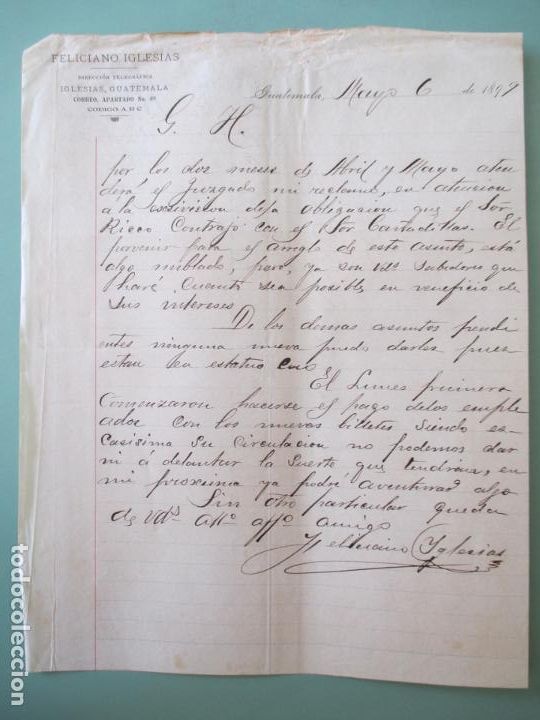 FELICIANO IGLESIAS
DIRECCIÓN TELEGRÁFICA
IGLESIAS, GUATEMALA
CORREO, APARTADO No. 49
CODIGO A B C
Guatemala, Mayo 6 de 1899
G. H.
por los dos meses de Abril y Mayo aten
derá el Juzgado mi reclamo, en atencion
a la exsivision de la obligacion que el Sor
Ricco Contrajo con el Sor Cantadillas. El
porvenir para el arreglo de este asunto, está
algo nublado, pero, ya son Vds sabedores que
haré Cuanto sea posible en beneficio de
sus intereses
De los demas asuntos pendi
entes ninguna nueva puedo darles pues
estan en estatus Cuo
El Lunes primero
Comenzaron hacerse el pago delos emple
ados con los nuevos billetes siendo es-
casisima su circulacion no podemos dar
ni á delantar la suerte que tendran, en
mi proxima ya podré aventurar algo
Sin otro particular queda
de Vds atto affo amigo
Feliciano Iglesias
todocoleccion